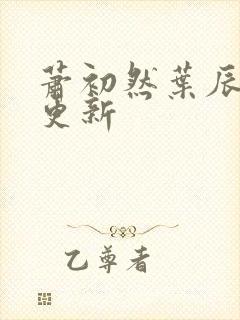 萧初然葉辰
更新
乙尊者